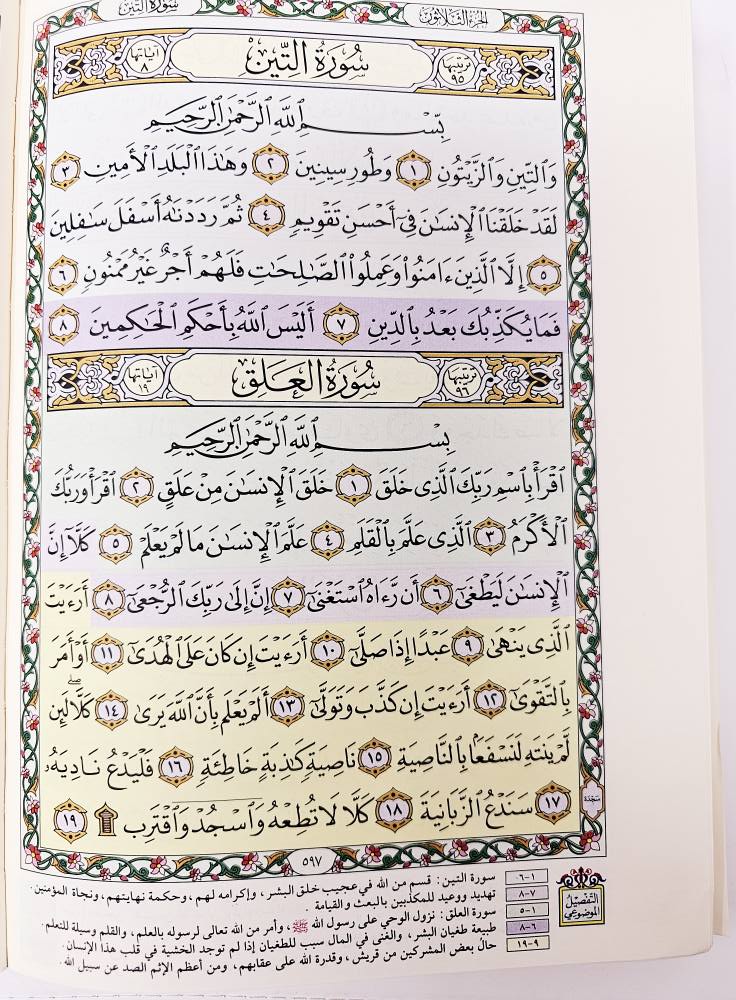 سُورَةُ التِّين
الجُزءُ الثَّلَاثُونَ
سُورَةُ التِّين
ترتيبها ٩٥
آياتها ٨
بِسْمِ ٱللَّهِ ٱلرَّحْمَٰنِ ٱلرَّحِيمِ
وَٱلتِّينِ وَٱلزَّيْتُونِ ١ وَطُورِ سِينِينَ ٢ وَهَٰذَا ٱلْبَلَدِ ٱلْأَمِينِ ٣
لَقَدْ خَلَقْنَا ٱلْإِنسَٰنَ فِىٓ أَحْسَنِ تَقْوِيمٍ ٤ ثُمَّ رَدَدْنَٰهُ أَسْفَلَ سَٰفِلِينَ
٥ إِلَّا ٱلَّذِينَ ءَامَنُوا۟ وَعَمِلُوا۟ ٱلصَّٰلِحَٰتِ فَلَهُمْ أَجْرٌ غَيْرُ مَمْنُونٍ ٦
فَمَا يُكَذِّبُكَ بَعْدُ بِٱلدِّينِ ٧ أَلَيْسَ ٱللَّهُ بِأَحْكَمِ ٱلْحَٰكِمِينَ ٨
سُورَةُ العَلَقِ
ترتيبها ٩٦
آياتها ١٩
بِسْمِ ٱللَّهِ ٱلرَّحْمَٰنِ ٱلرَّحِيمِ
ٱقْرَأْ بِٱسْمِ رَبِّكَ ٱلَّذِى خَلَقَ ١ خَلَقَ ٱلْإِنسَٰنَ مِنْ عَلَقٍ ٢ ٱقْرَأْ وَرَبُّكَ
ٱلْأَكْرَمُ ٣ ٱلَّذِى عَلَّمَ بِٱلْقَلَمِ ٤ عَلَّمَ ٱلْإِنسَٰنَ مَا لَمْ يَعْلَمْ ٥ كَلَّآ إِنَّ
ٱلْإِنسَٰنَ لَيَطْغَىٰٓ ٦ أَن رَّءَاهُ ٱسْتَغْنَىٰٓ ٧ إِنَّ إِلَىٰ رَبِّكَ ٱلرُّجْعَىٰٓ ٨ أَرَءَيْتَ
ٱلَّذِى يَنْهَىٰ ٩ عَبْدًا إِذَا صَلَّىٰٓ ١٠ أَرَءَيْتَ إِن كَانَ عَلَى ٱلْهُدَىٰٓ ١١ أَوْ أَمَرَ
بِٱلتَّقْوَىٰٓ ١٢ أَرَءَيْتَ إِن كَذَّبَ وَتَوَلَّىٰٓ ١٣ أَلَمْ يَعْلَم بِأَنَّ ٱللَّهَ يَرَىٰ ١٤ كَلَّا لَئِن
لَّمْ يَنتَهِ لَنَسْفَعًۢا بِٱلنَّاصِيَةِ ١٥ نَاصِيَةٍ كَٰذِبَةٍ خَاطِئَةٍ ١٦ فَلْيَدْعُ نَادِيَهُۥ
١٧ سَنَدْعُ ٱلزَّبَانِيَةَ ١٨ كَلَّا لَا تُطِعْهُ وَٱسْجُدْ وَٱقْتَرِب ۩ ١٩
سَجْدَة
٥٩٧
التفصيل الموضوعي
١-٦ سورة التين: قسم من الله في عجيب خلق البشر، وإكرامه لهم، وحكمة نهايتهم، ونجاة المؤمنين.
٧-٨ تهديد ووعيد للمكذبين بالبعث والقيامة.
١-٥ سورة العلق: نزول الوحي على رسول الله ﷺ، وأمر من الله تعالى لرسوله بالعلم، والقلم وسيلة للتعلم.
٦-٨ طبيعة طغيان البشر، والغنى في المال سبب للطغيان إذا لم توجد الخشية في قلب هذا الإنسان.
٩-١٩ حال بعض المشركين من قريش، وقدرة الله على عقابهم، ومن أعظم الإثم الصد عن سبيل الله.